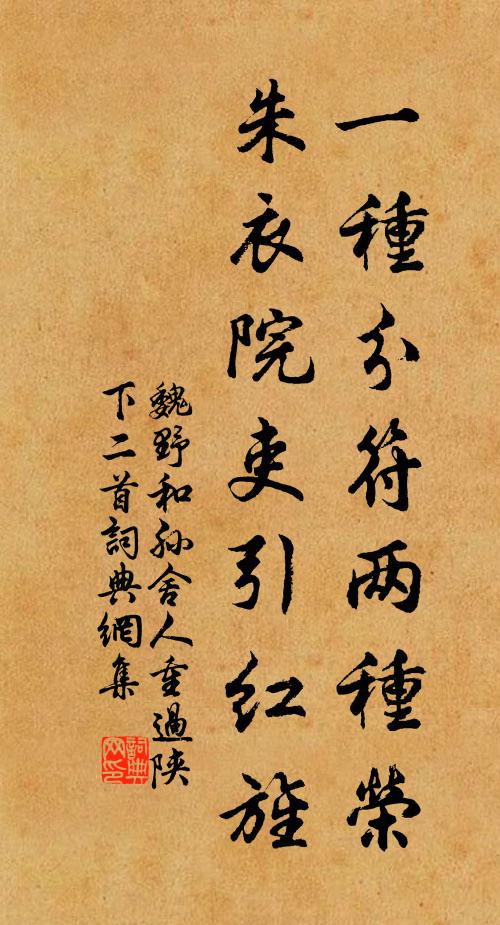 一種分符两種榮
朱衣院吏引红旌
魏野和孙舍人重過陕
下二首詞典網集
詞典
网印